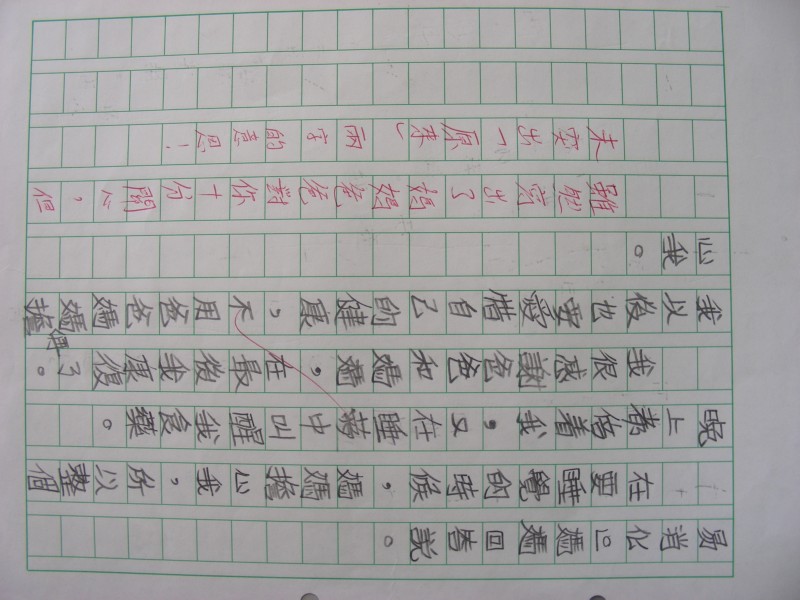 易消化。」媽媽回答說。
在要睡覺的時候，媽媽擔心我，所以整個
晚上都陪着我，又在睡夢中叫醒我食藥。
我很感謝爸爸和媽媽，在最後我康復了。
我以後也要愛惜自己的健康，不用爸爸媽媽擔
心我。
雖然寫出了媽媽爸爸對你十分關心，但
未突出「原來」兩字的意思！